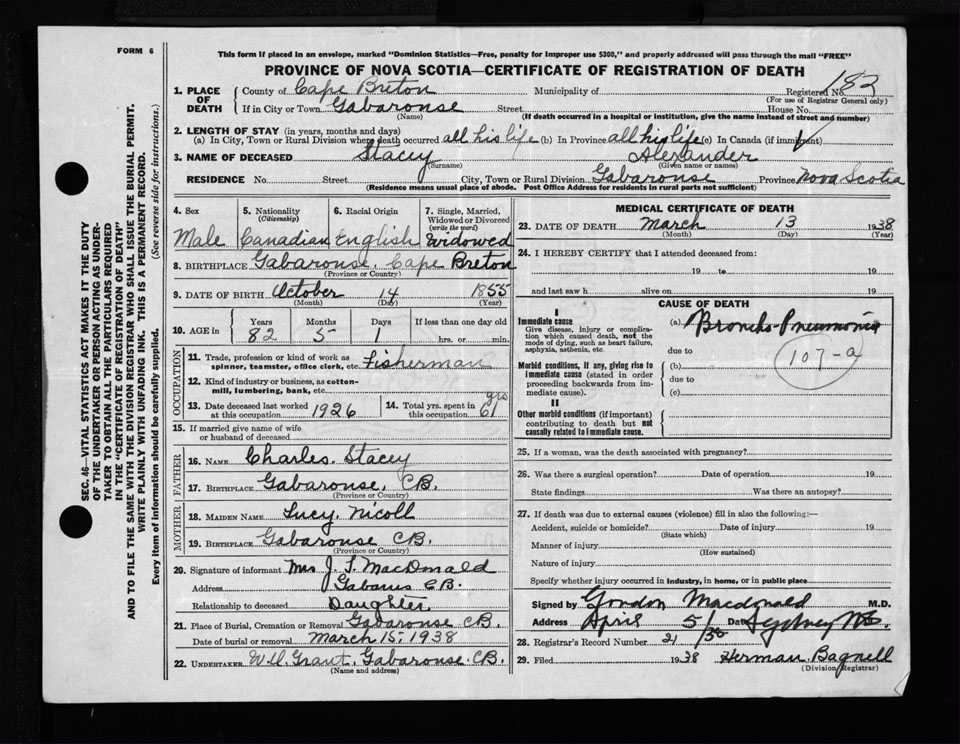 FORM 6
This form if placed in an envelope, marked "Dominion Statistics—Free, penalty for improper use $300," and properly addressed will pass through the mail "FREE"
PROVINCE OF NOVA SCOTIA—CERTIFICATE OF REGISTRATION OF DEATH
183
1. PLACE OF DEATH County of Cape Breton Municipality of Registered No.
(For use of Registrar General only)
If in City or Town Gabarouse Street House No.
(Name) (If death occurred in a hospital or institution, give the name instead of street and number)
2. LENGTH OF STAY (in years, months and days)
(a) In City, Town or Rural Division where death occurred all his life (b) In Province all his life (c) In Canada (if immigrant)
3. NAME OF DECEASED Stacey Alexander
(Surname) (Given name or names)
RESIDENCE No. Street City, Town or Rural Division Gabarouse Province Nova Scotia
(Residence means usual place of abode. Post Office Address for residents in rural parts not sufficient)
4. Sex 5. Nationality (Citizenship) 6. Racial Origin 7. Single, Married, Widowed or Divorced (write the word)
Male Canadian English Widowed
8. BIRTHPLACE Gabarouse, Cape Breton
(Province or Country)
9. DATE OF BIRTH October 14 1855
(Month) (Day) (Year)
10. AGE in Years Months Days If less than one day old
82 5 1 hrs. or min.
OCCUPATION
11. Trade, profession or kind of work as spinner, teamster, office clerk, etc. Fisherman
12. Kind of industry or business, as cotton-mill, lumbering, bank, etc.
13. Date deceased last worked at this occupation 1926 14. Total yrs. spent in this occupation 61 yrs
15. If married give name of wife or husband of deceased
FATHER
16. NAME Charles Stacey
17. BIRTHPLACE Gabarouse, C.B.
(Province or Country)
MOTHER
18. MAIDEN NAME Lucy Nicoll
19. BIRTHPLACE Gabarouse C.B.
(Province or Country)
20. Signature of informant Mrs J. T. MacDonald
Address Gabarus C.B.
Relationship to deceased Daughter
21. Place of Burial, Cremation or Removal Gabarouse C.B.
Date of burial or removal March 15, 1938
22. UNDERTAKER Grant, Gabarouse C.B.
(Name and address)
MEDICAL CERTIFICATE OF DEATH
23. DATE OF DEATH March 13 1938
(Month) (Day) (Year)
24. I HEREBY CERTIFY that I attended deceased from:
19 to 19
and last saw h alive on 19
CAUSE OF DEATH
I
Immediate cause (a) Broncho-Pneumonia
Give disease, injury or complication which caused death, not the mode of dying, such as heart failure, asphyxia, asthenia, etc.
due to 107-a
Morbid conditions, if any, giving rise to immediate cause (stated in order proceeding backwards from immediate cause).
(b)
due to
(c)
II
Other morbid conditions (if important) contributing to death but not causally related to immediate cause.
25. If a woman, was the death associated with pregnancy?
26. Was there a surgical operation? Date of operation 19
State findings Was there an autopsy?
27. If death was due to external causes (violence) fill in also the following:—
Accident, suicide or homicide? Date of injury 19
(State which)
Manner of injury
(How sustained)
Nature of injury
Specify whether injury occurred in industry, in home, or in public place
Signed by Gordon Macdonald M.D.
Address April 5/ Date Sydney N.S.
28. Registrar's Record Number 21/38
29. Filed 1938 Herman Bagnell
(Division Registrar)
SEC. 46—VITAL STATISTICS ACT MAKES IT THE DUTY
OF THE UNDERTAKER OR PERSON ACTING AS UNDER-
TAKER TO OBTAIN ALL THE PARTICULARS REQUIRED
IN THE "CERTIFICATE OF REGISTRATION OF DEATH"
AND TO FILE THE SAME WITH THE DIVISION REGISTRAR WHO SHALL ISSUE THE BURIAL PERMIT.
WRITE PLAINLY WITH UNFADING INK. THIS IS A PERMANENT RECORD.
Every item of information should be carefully supplied. (See reverse side for instructions.)